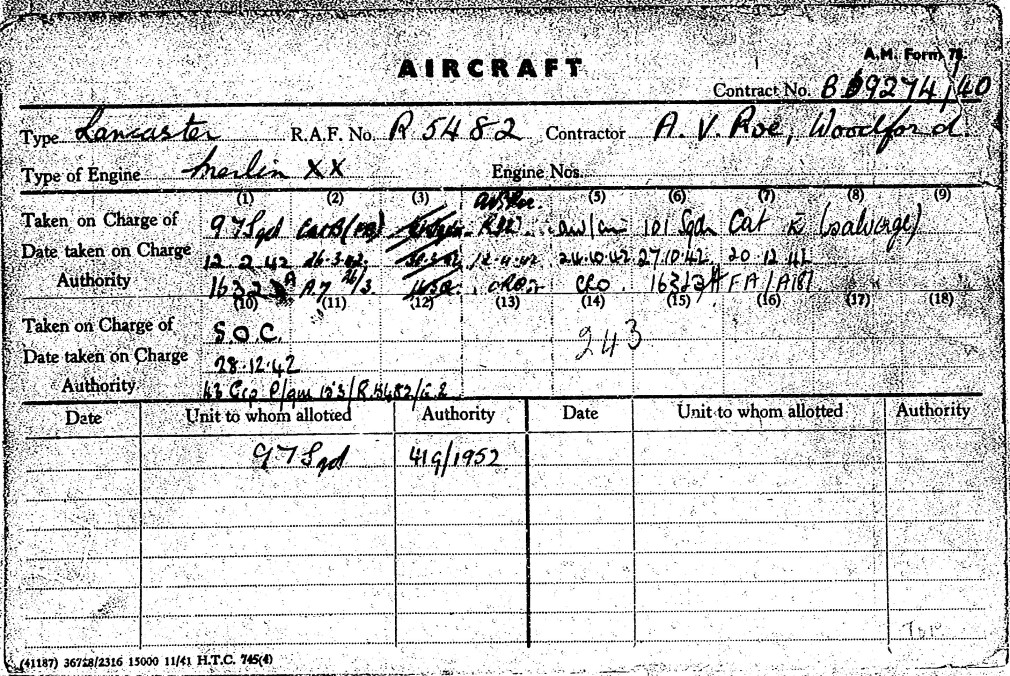 A.M. Form 78.
AIRCRAFT
Contract No. B 69274/40
Type Lancaster R.A.F. No. R 5482 Contractor A. V. Roe, Woodford.
Type of Engine Merlin XX Engine Nos.
(1) (2) (3) (5) (6) (7) (8) (9)
Taken on Charge of 97 Sqd CatB(FB) 101 Sqdn Cat E (salvage)
Date taken on Charge 12.2.42 26.3.42. 12.4.42 24.10.42 27.10.42 20.12.42
Authority A7 26/3. FA/A181
(10) (11) (12) (13) (14) (15) (16) (17) (18)
Taken on Charge of S.O.C. 243
Date taken on Charge 28.12.42
Authority 43 Grp
Date Unit to whom allotted Authority Date Unit to whom allotted Authority
97 Sqd 41G/1952
(41187) 36728/2316 15000 11/41 H.T.C. 745(4)